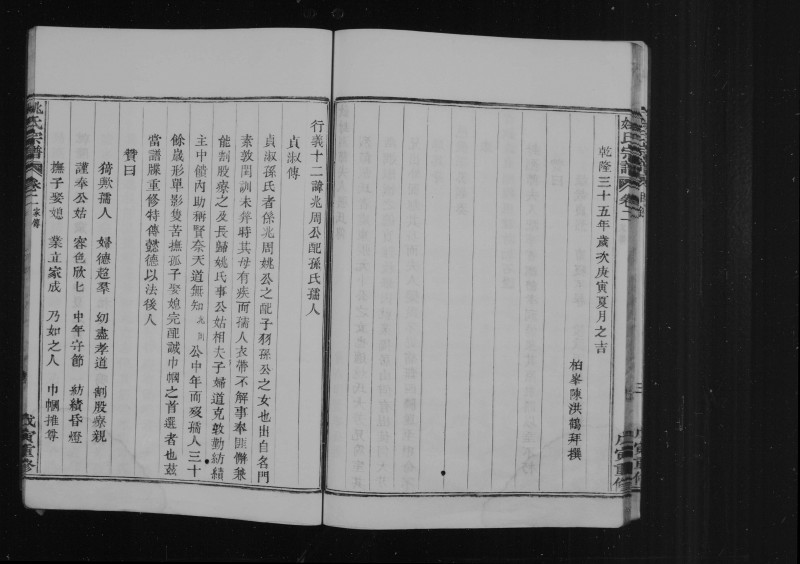 姚氏宗譜
卷二
乾隆三十五年歲次庚寅夏月之吉
柏峯陳洪鶴拜撰
行義十二諱兆周公配孫氏孺人
貞淑傳
貞淑孫氏者係兆周姚公之配子羽孫公之女也出自名門
素敦閨訓未笄時其母有疾而孺人衣帶不解事奉匪懈兼
能割股療之及長歸姚氏事公姑相夫子婦道克敦勤紡績
主中饋內助稱賢奈天道無知兆周公中年而歿孺人三十
餘歲形單影隻苦撫孤子娶媳完配誠巾幗之首選者也茲
當譜牒重修特傳懿德以法後人
贊曰
猗歟孺人 婦德超羣 幼盡孝道 割股療親
謹奉公姑 容色欣欣 中年守節 紡績昏燈
撫子娶媳 業立家成 乃如之人 巾幗推尊
姚氏宗譜
卷二
家傳
戊寅重修